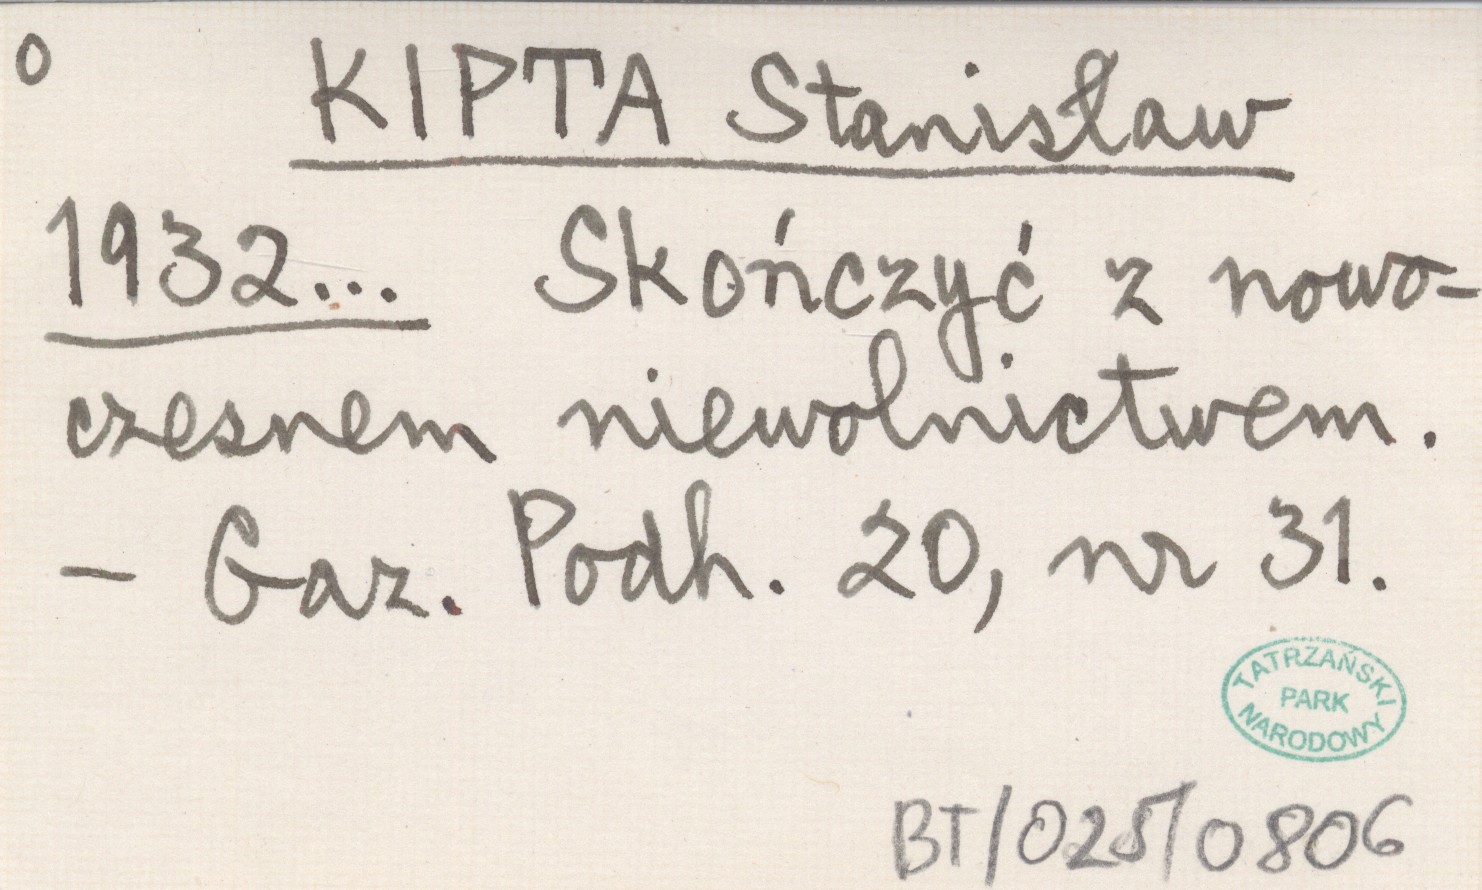 0 KIPTA Stanisław
1932... Skończyć z nowo-
czesnem niewolnictwem.
- Gaz. Podh. 20, nr 31.
TATRZAŃSKI
PARK
NARODOWY
BT/025/0806